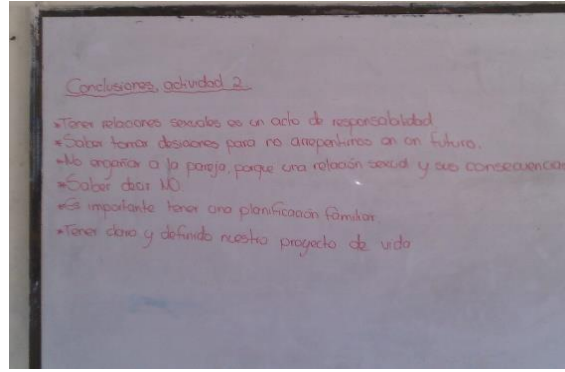 Conclusiones, actividad 2.
*Tener relaciones sexuales es un acto de responsabilidad.
*Saber tomar desiciones para no arrepentirnos en un futuro.
*No engañar a la pareja, porque una relación sexual y sus consecuencias
*Saber decir NO.
*Es importante tener una planificación familiar
*Tener claro y definido nuestro proyecto de vida